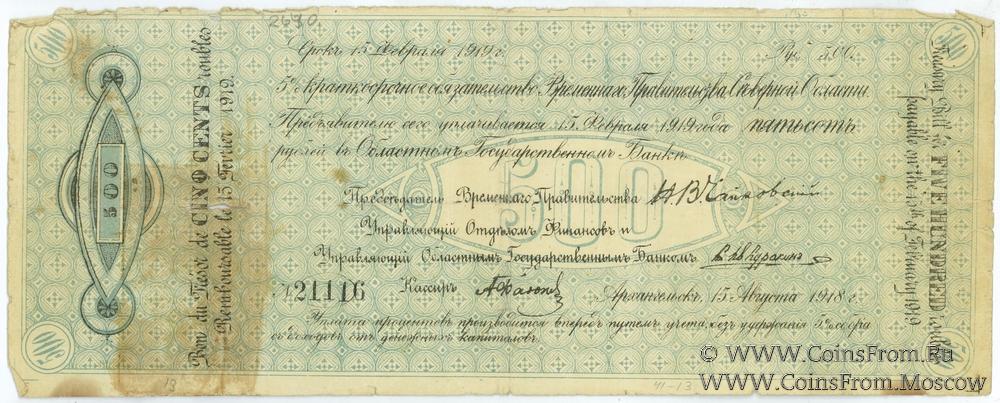 2690.
Срокъ 15 Февраля 1919 г. Руб. 500.
5% краткосрочное обязательство Временнаго Правительства Сѣверной Области
Предъявителю сего уплачивается 15 Февраля 1919 года пятьсотъ
рублей въ Областномъ Государственномъ Банкѣ.
500
Предсѣдатель Временнаго Правительства Н. В. Чайковскій
Управляющій Отдѣломъ Финансовъ и
Управляющій Областнымъ Государственнымъ Банкомъ
№ 21116 Кассиръ
Архангельскъ, 15 Августа 1918 г.
Уплата процентовъ производится впередъ путемъ учета, безъ удержанія 5% сбора
съ доходовъ отъ денежныхъ капиталовъ.
500
Bon du Trésor de CINQ CENTS roubles
Remboursable le 15 Février 1919.
FIVE HUNDRED
payable on the 15th of February 1919
13
41-13
© WWW.CoinsFrom.Ru
WWW.CoinsFrom.Moscow